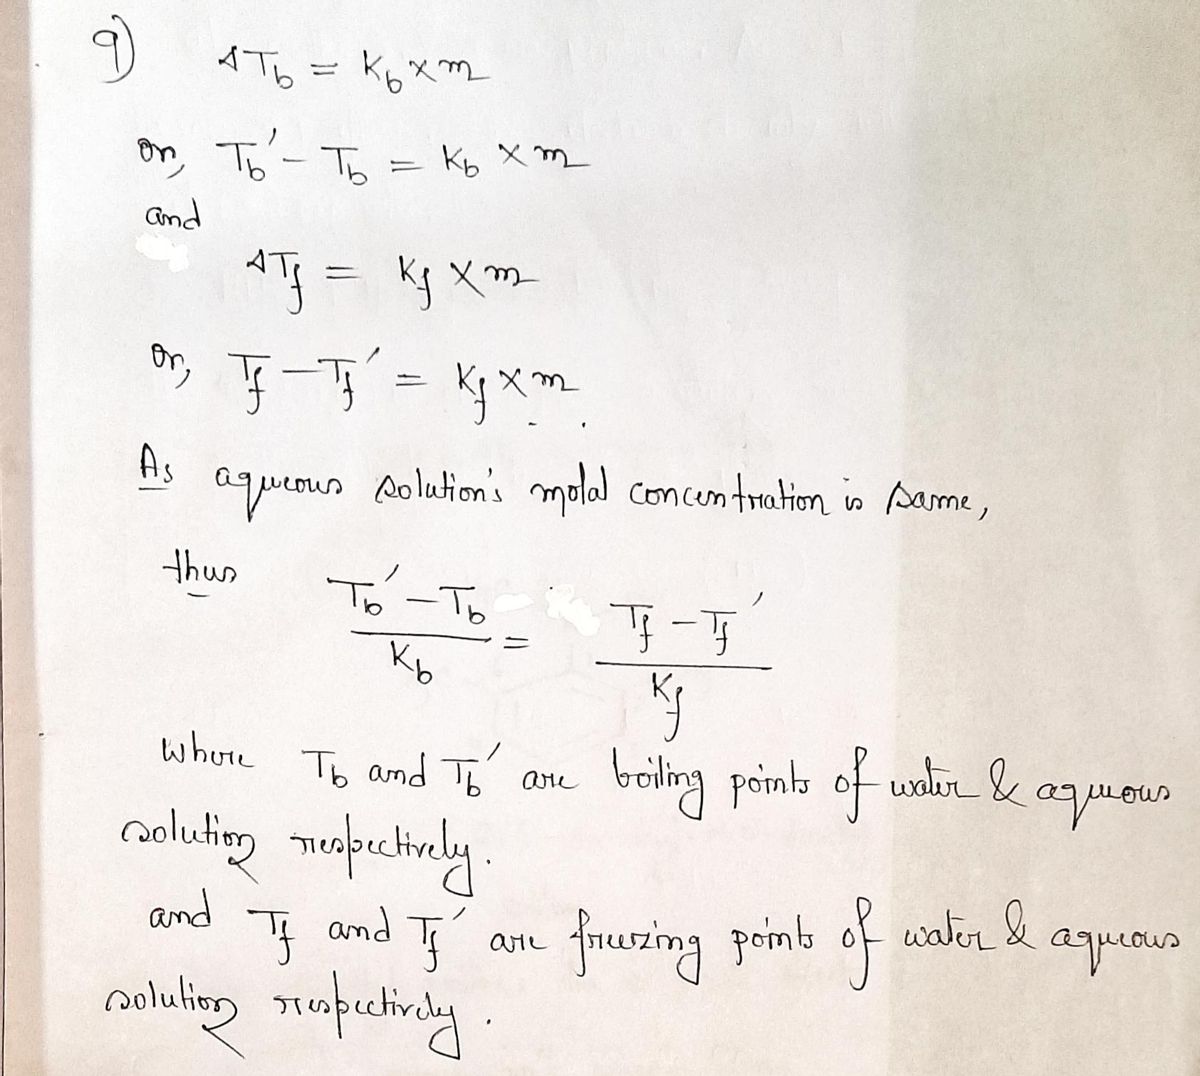 9) ΔT_b = K_b × m
or, T_b' – T_b = K_b × m
and
ΔT_f = K_f × m
or, T_f – T_f' = K_f × m
As aqueous solution's molal concentration is same,
thus (T_b' – T_b) / K_b = (T_f – T_f') / K_f
where T_b and T_b' are boiling points of water & aqueous
solution respectively.
and T_f and T_f' are freezing points of water & aqueous
solution respectively.